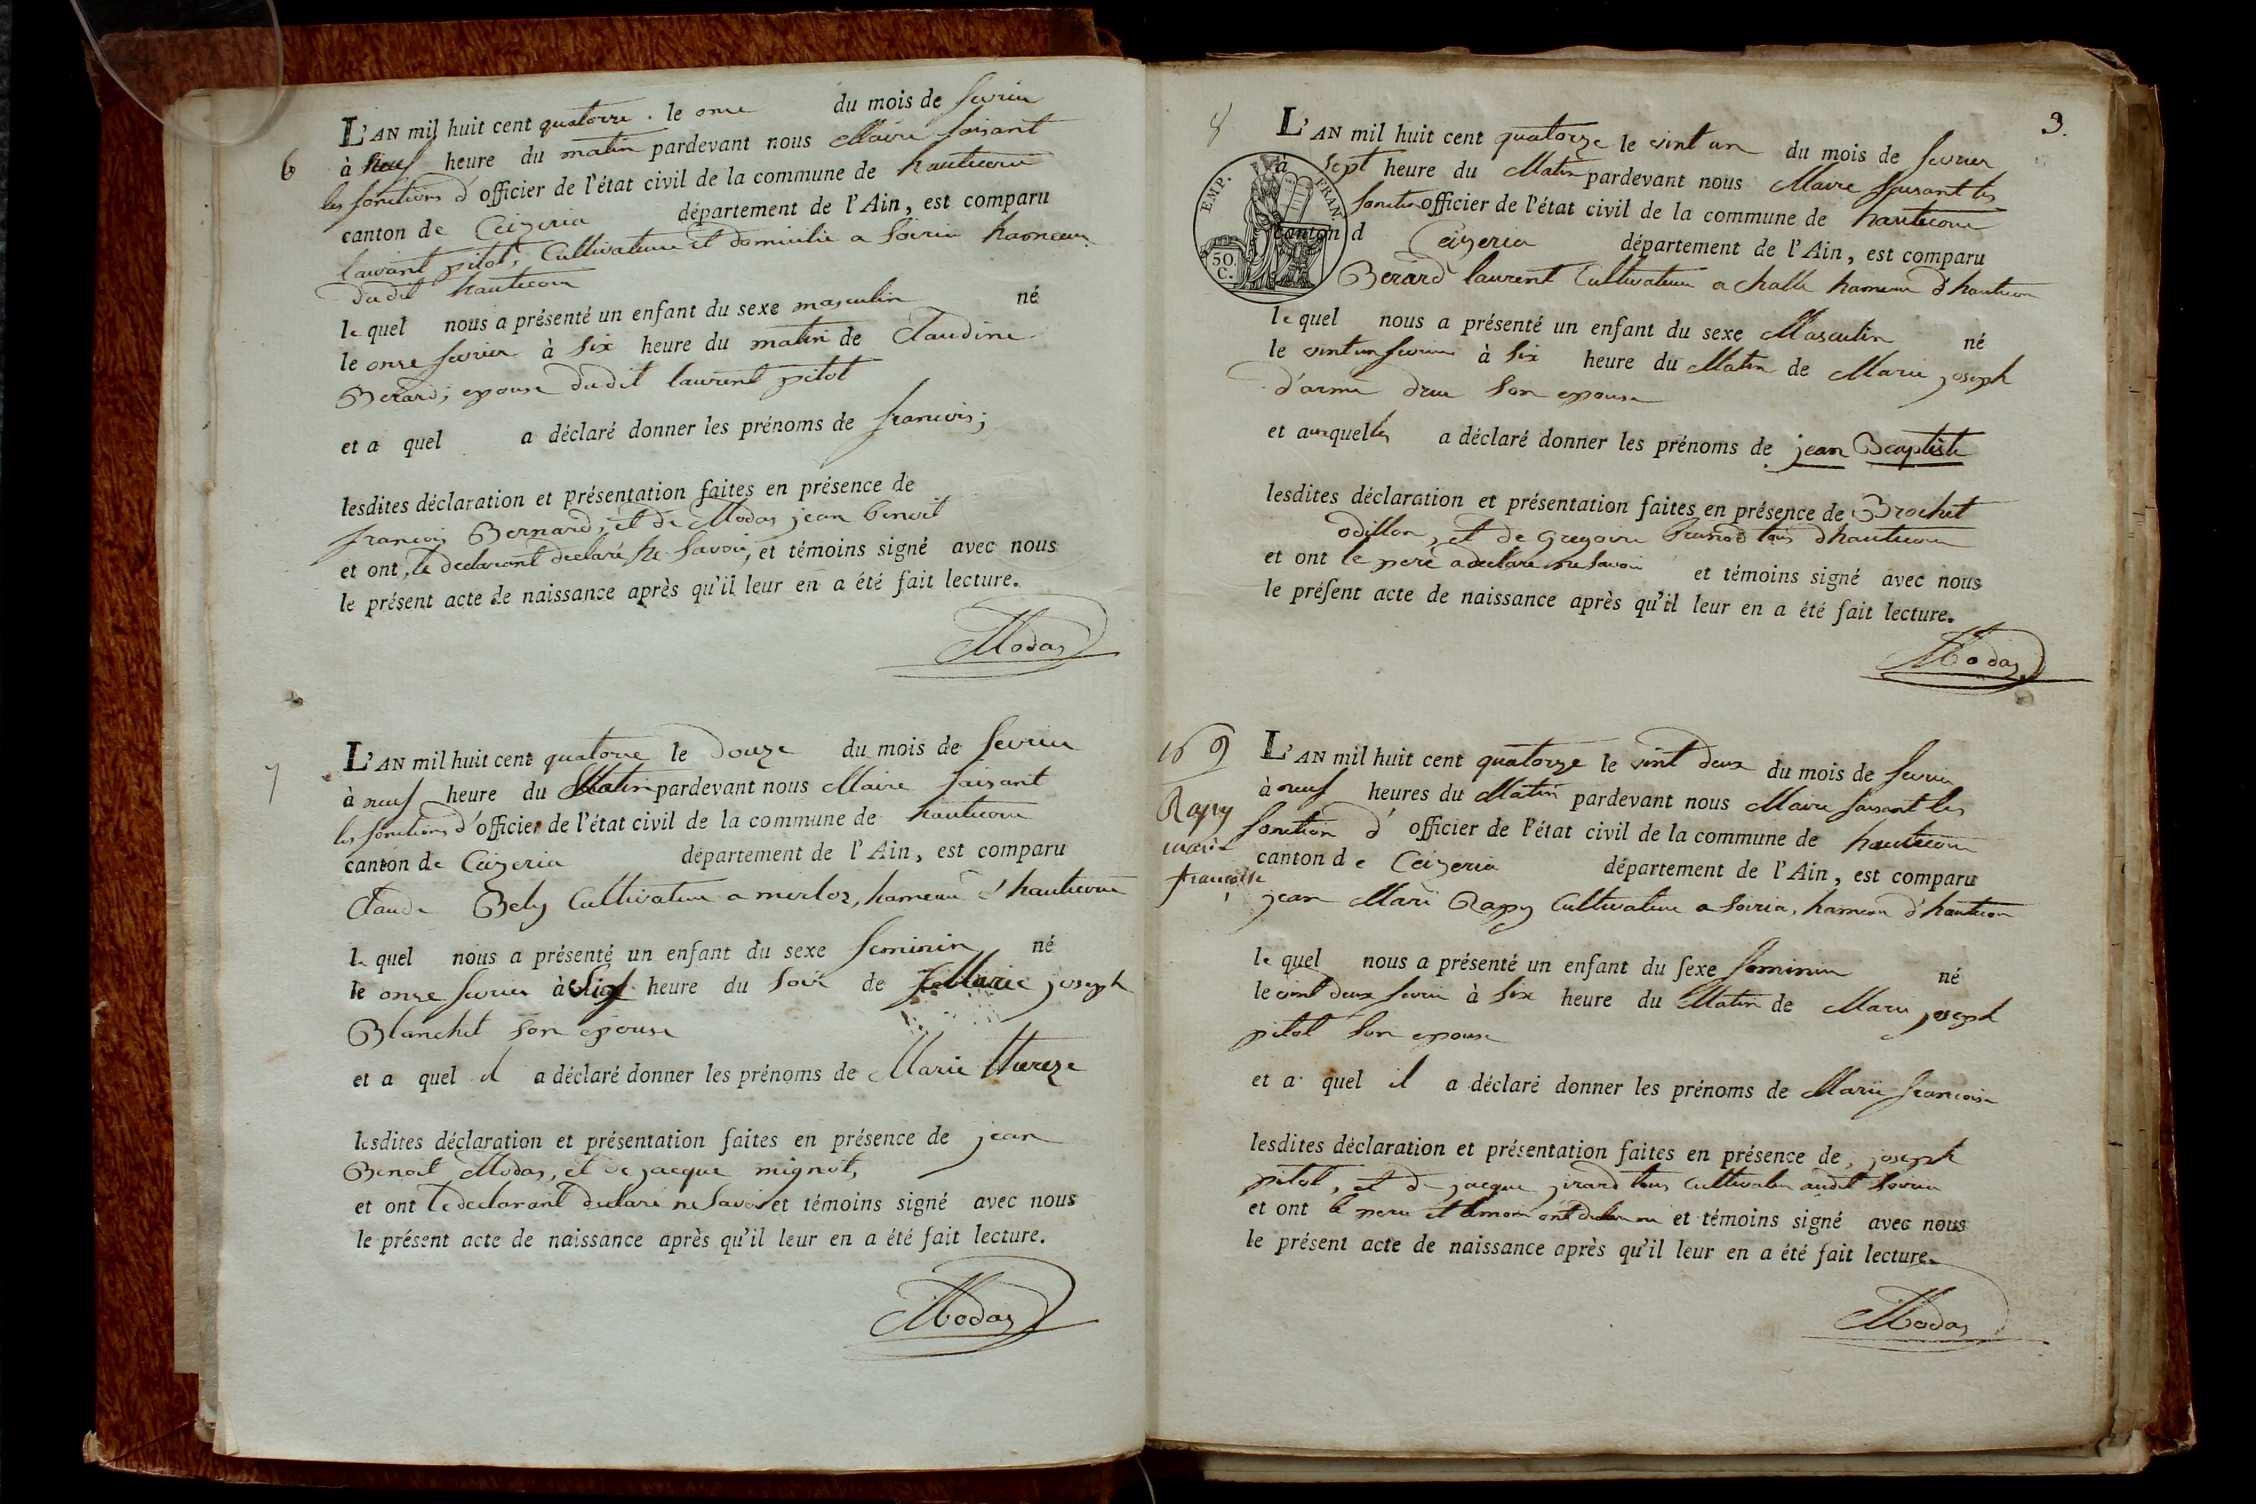 6
L'AN mil huit cent quatorze . le onze du mois de fevrier
à neuf heure du matin pardevant nous Maire faisant
les fonctions d'officier de l'état civil de la commune de hautecour
canton de Ceizeria département de l'Ain, est comparu
laurant pitot, Cultivateur et domicilié a Soiria hameau
dudit hautecour
le quel nous a présenté un enfant du sexe masculin né
le onze fevrier à Six heure du matin de Claudine
Berard, epouse dudit laurent pitot
et a quel a déclaré donner les prénoms de francois;
lesdites déclaration et présentation faites en présence de
francois Bernard, et de Modas jean benoit
et ont, le declarant declaré ne Savoir, et témoins signé avec nous
le présent acte de naissance après qu'il leur en a été fait lecture.
Modas
7
L'AN mil huit cent quatorze le Douze du mois de fevrier
à neuf heure du Matin pardevant nous Maire faisant
les fonctions d'officier de l'état civil de la commune de hautecour
canton de Ceizeria département de l'Ain, est comparu
Claude Bely Cultivateur a merloz, hameau d'hautecour
le quel nous a présenté un enfant du sexe feminin né
le onze fevrier à heure du Soir de Marie joseph
Blanchet son epouse
et a quel il a déclaré donner les prénoms de Marie thereze
lesdites déclaration et présentation faites en présence de jean
Benoit Modas, et de jacque mignot,
et ont le declarant declaré ne Savoir et témoins signé avec nous
le présent acte de naissance après qu'il leur en a été fait lecture.
Modas
3.
8
L'AN mil huit cent quatorze le vint un du mois de fevrier
à Sept heure du Matin pardevant nous Maire faisant les
fonction officier de l'état civil de la commune de hautecour
canton d Ceizeria département de l'Ain, est comparu
EMP. FRAN.
50. C.
Berard laurent Cultivateur a challe hameau d'hautecour
le quel nous a présenté un enfant du sexe Masculin né
le vint un fevrier à Six heure du Matin de Marie joseph
d'arme son epouse
et auxquelles a déclaré donner les prénoms de jean Baptiste
lesdites déclaration et présentation faites en présence de Brochet
odillon, et de Gregoire tous d'hautecour
et ont le pere a declaré ne Savoir et témoins signé avec nous
le présent acte de naissance après qu'il leur en a été fait lecture.
Modas
16 9
Rapy
marie
françoise
L'AN mil huit cent quatorze le vint deux du mois de fevrier
à neuf heures du Matin pardevant nous Maire faisant les
fonction d' officier de l'état civil de la commune de hautecour
canton de Ceizeria département de l'Ain, est comparu
jean Marie Rapy Cultivateur a Soiria, hameau d'hautecour
le quel nous a présenté un enfant du sexe feminin né
le vint deux fevrier à Six heure du Matin de Marie joseph
pitot Son epouse
et a quel il a déclaré donner les prénoms de Marie francoise
lesdites déclaration et présentation faites en présence de, joseph
pitot, et de jacque girard tous Cultivateur audit Soiria
et ont le pere et temoin ont ne et témoins signé avec nous
le présent acte de naissance après qu'il leur en a été fait lecture.
Modas